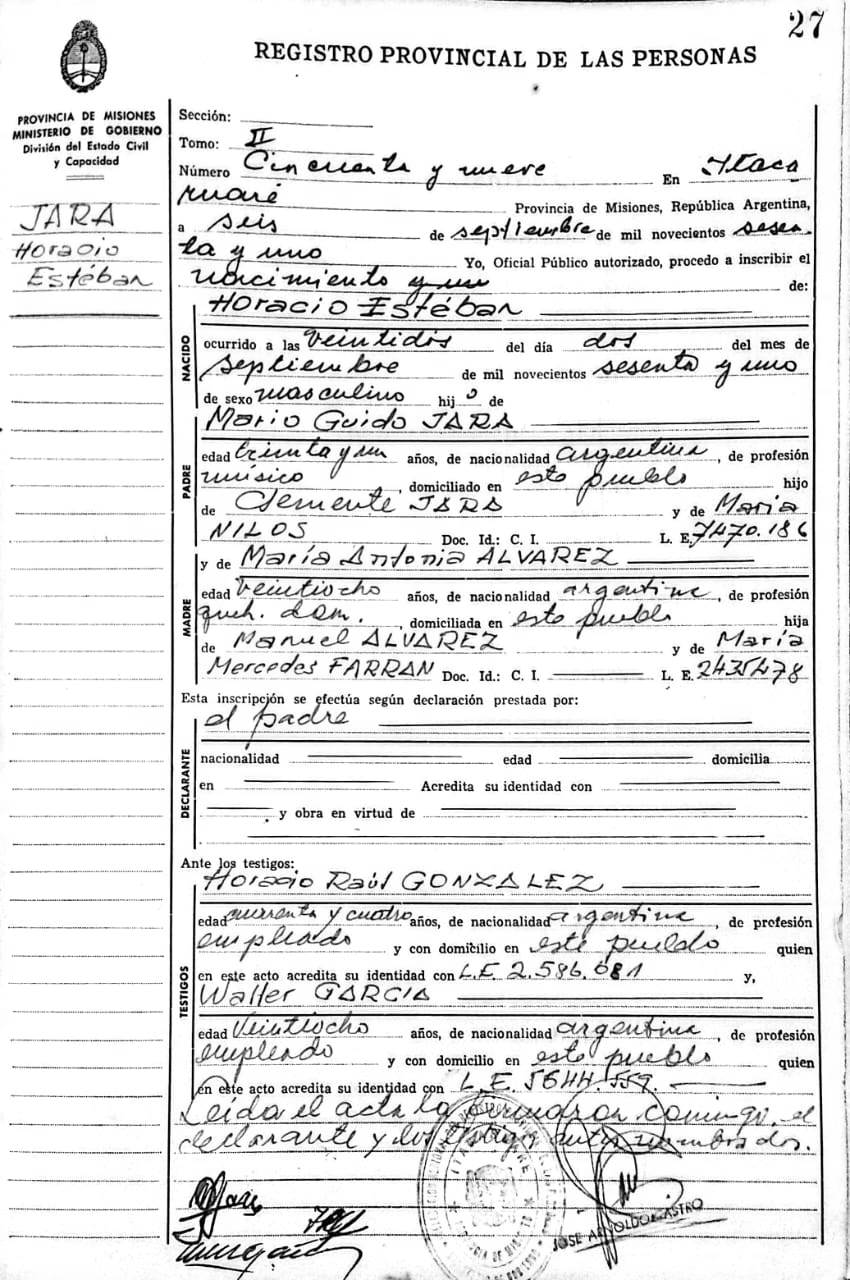 27
REGISTRO PROVINCIAL DE LAS PERSONAS
PROVINCIA DE MISIONES
MINISTERIO DE GOBIERNO
División del Estado Civil
y Capacidad
JARA
Horacio
Estéban
Sección:
Tomo: II
Número Cincuenta y nueve En Itaca
ruaré Provincia de Misiones, República Argentina,
a seis de septiembre de mil novecientos sesen
ta y uno Yo, Oficial Público autorizado, procedo a inscribir el
nacimiento de:
Horacio Estéban
NACIDO
ocurrido a las veintidós del día dos del mes de
septiembre de mil novecientos sesenta y uno
de sexo masculino hijo de
Mario Guido JARA
PADRE
edad treinta y un años, de nacionalidad argentina, de profesión
músico, domiciliado en este pueblo hijo
de Clemente JARA y de María
NILOS Doc. Id.: C. I. L. E. 7470.186
y de María Antonia ALVAREZ
MADRE
edad veintiocho años, de nacionalidad argentina, de profesión
queh. dom., domiciliada en este pueblo hija
de Manuel ALVAREZ y de María
Mercedes FARRAN Doc. Id.: C. I. L. E. 2435478
Esta inscripción se efectúa según declaración prestada por:
el padre
DECLARANTE
nacionalidad edad domicilia
en Acredita su identidad con
y obra en virtud de
Ante los testigos:
Horacio Raúl GONZALEZ
TESTIGOS
edad cuarenta y cuatro años, de nacionalidad argentina, de profesión
empleado y con domicilio en este pueblo quien
en este acto acredita su identidad con L.E. 2.586.681 y,
Walter GARCIA
edad veintiocho años, de nacionalidad argentina, de profesión
empleado y con domicilio en este pueblo quien
en este acto acredita su identidad con L.E. 5644.559.
Leída el acta la firmaron conmigo, el
declarante y los testigos antes nombrados.
JOSE ARNOLDO CASTRO